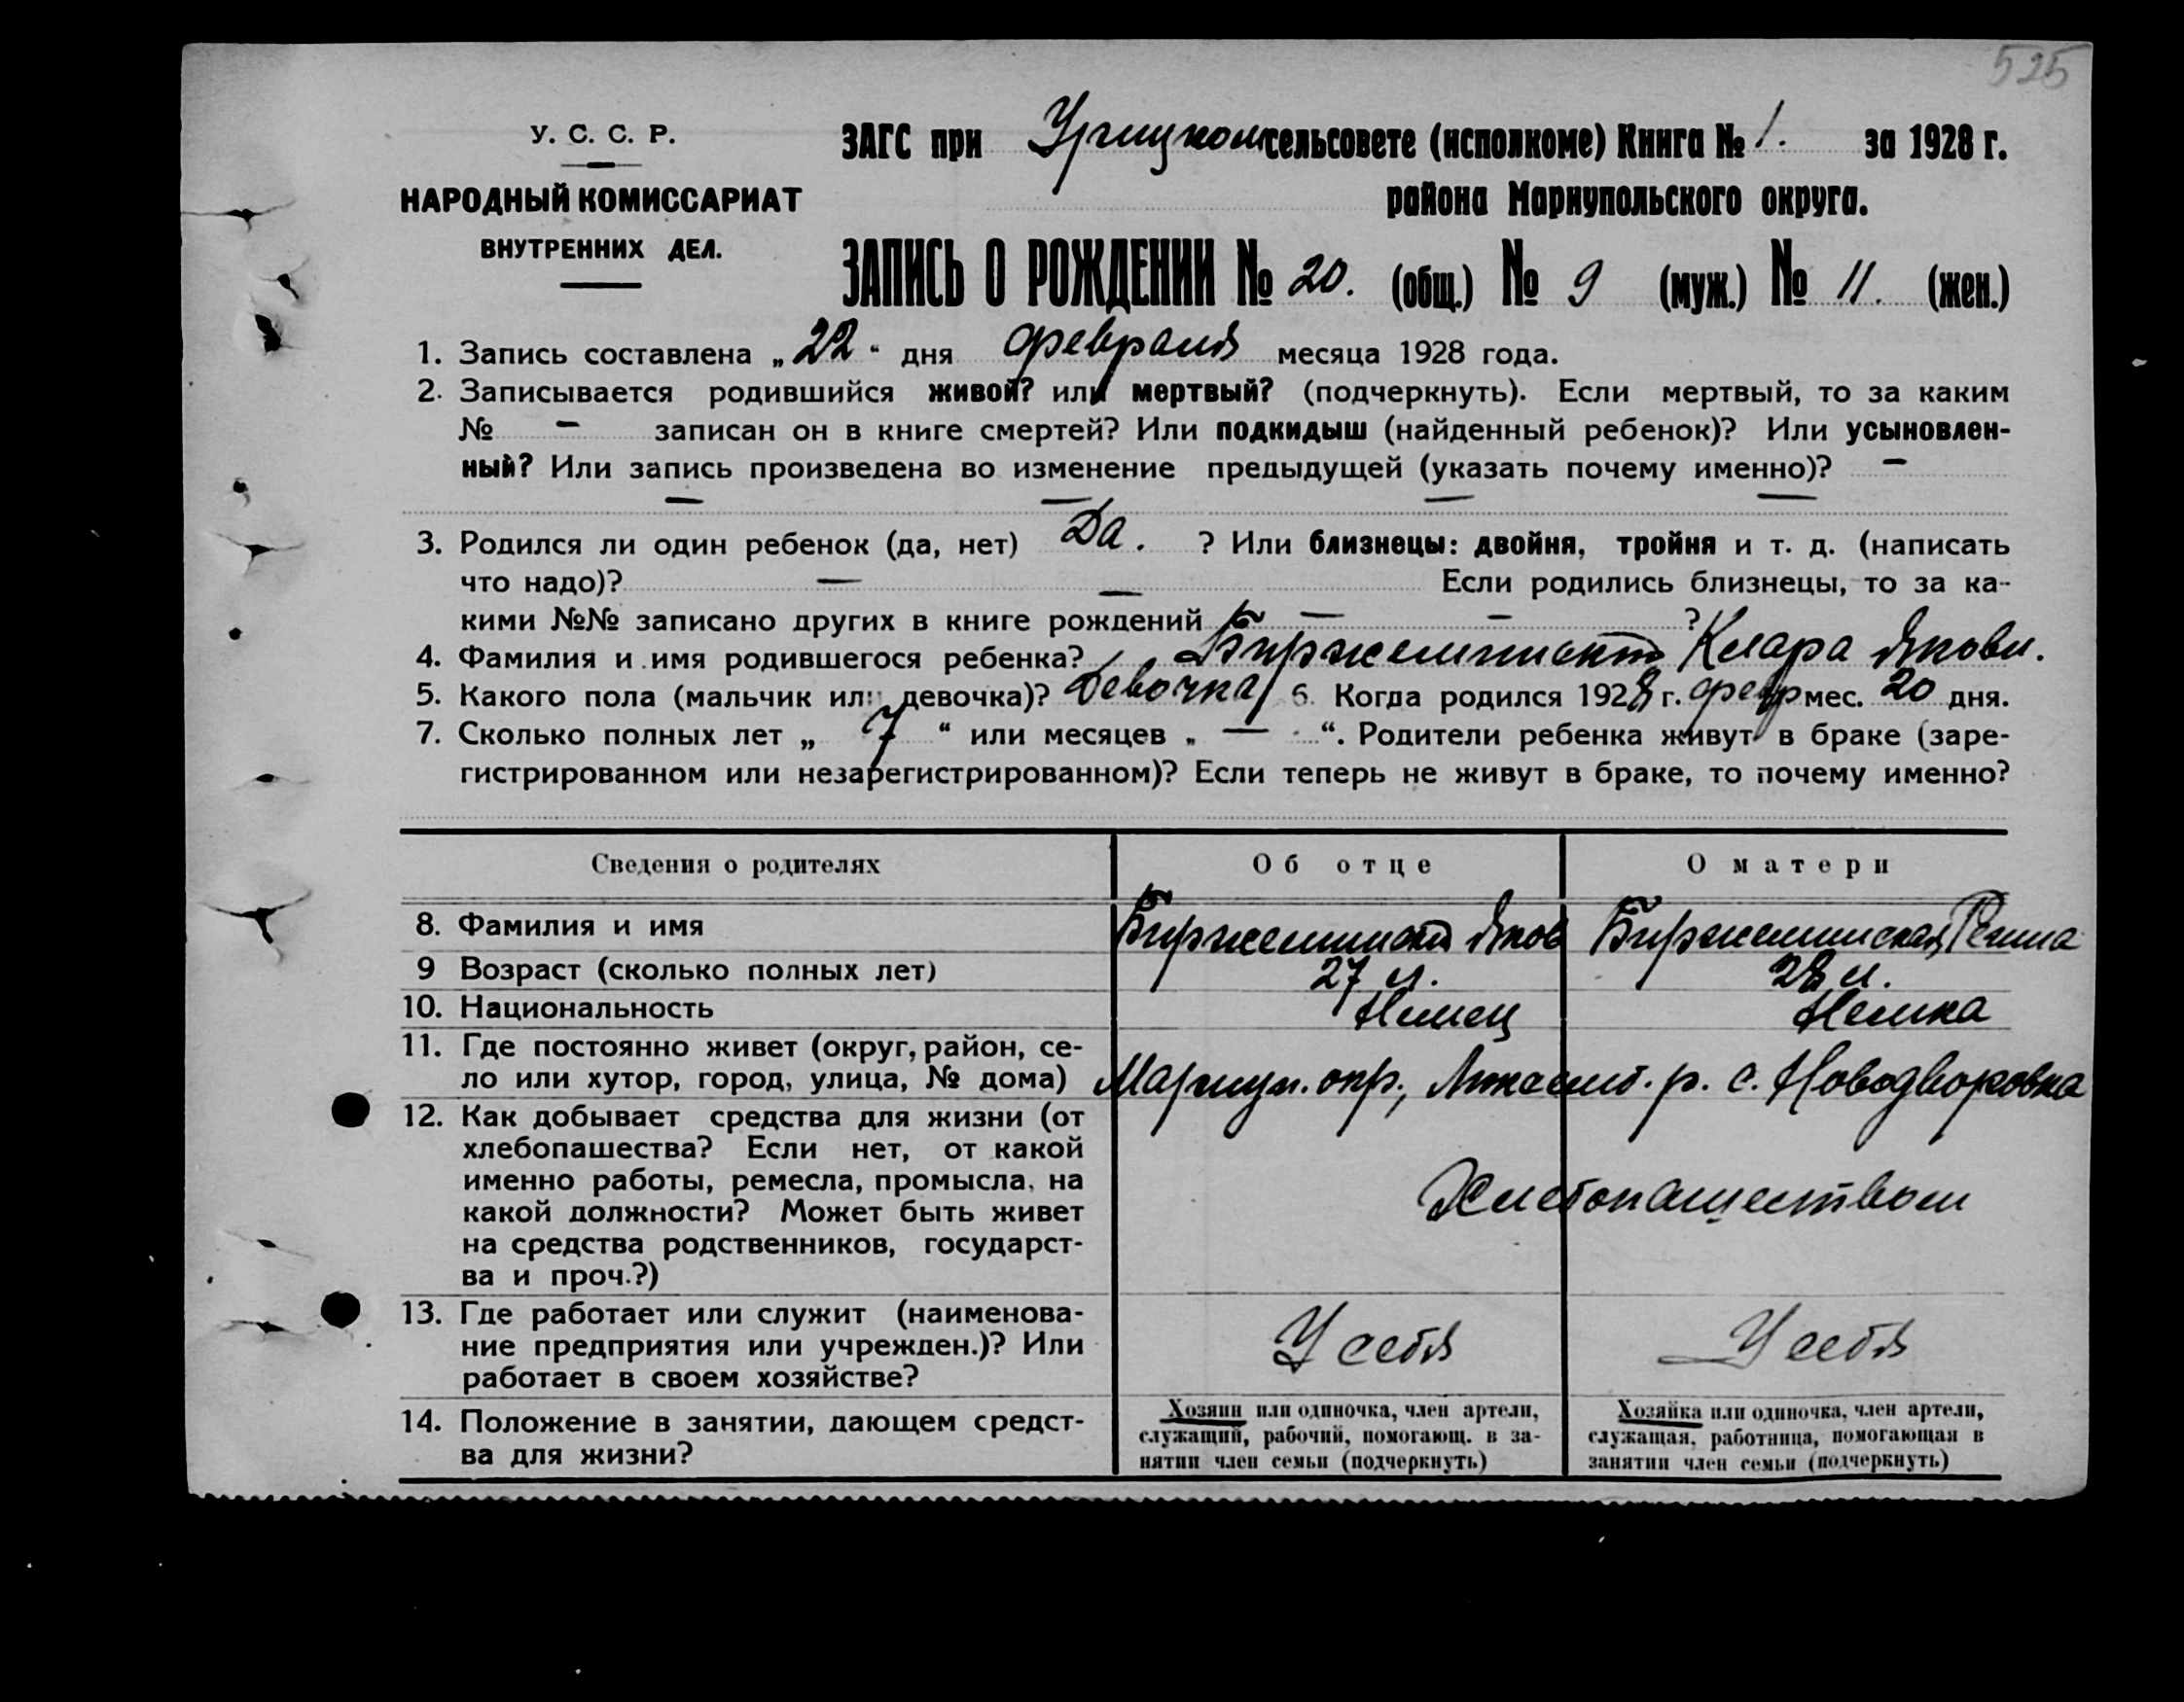 525
У. С. С. Р.
НАРОДНЫЙ КОМИССАРИАТ
ВНУТРЕННИХ ДЕЛ.
ЗАГС при Урицком сельсовете (исполкоме) Книга № 1. за 1928 г.
района Мариупольского округа.
ЗАПИСЬ О РОЖДЕНИИ № 20. (общ.) № 9 (муж.) № 11. (жен.)
1. Запись составлена „22“ дня февраля месяца 1928 года.
2. Записывается родившийся живой? или мертвый? (подчеркнуть). Если мертвый, то за каким
№ — записан он в книге смертей? Или подкидыш (найденный ребенок)? Или усыновлен-
ный? Или запись произведена во изменение предыдущей (указать почему именно)? —
— — — —
3. Родился ли один ребенок (да, нет) Да. ? Или близнецы: двойня, тройня и т. д. (написать
что надо)? — — Если родились близнецы, то за ка-
кими №№ записано других в книге рождений — — ?
4. Фамилия и имя родившегося ребенка? Клара Яковл.
5. Какого пола (мальчик или девочка)? Девочка 6. Когда родился 1928 г. февр мес. 20 дня.
7. Сколько полных лет „ 7 “ или месяцев „ — “. Родители ребенка живут в браке (заре-
гистрированном или незарегистрированном)? Если теперь не живут в браке, то почему именно?
Сведения о родителях Об отце О матери
8. Фамилия и имя Яков
9 Возраст (сколько полных лет) 27 л. 28 л.
10. Национальность Немец Немка
11. Где постоянно живет (округ, район, се-
ло или хутор, город, улица, № дома) Мариуп. окр., р. с. Новодворовка
12. Как добывает средства для жизни (от
хлебопашества? Если нет, от какой
именно работы, ремесла, промысла, на
какой должности? Может быть живет
на средства родственников, государст-
ва и проч.?)
Хлебопашеством
13. Где работает или служит (наименова-
ние предприятия или учрежден.)? Или
работает в своем хозяйстве?
У себя У себя
14. Положение в занятии, дающем средст-
ва для жизни?
Хозяин или одиночка, член артели,
служащий, рабочий, помогающ. в за-
нятии член семьи (подчеркнуть)
Хозяйка или одиночка, член артели,
служащая, работница, помогающая в
занятии член семьи (подчеркнуть)